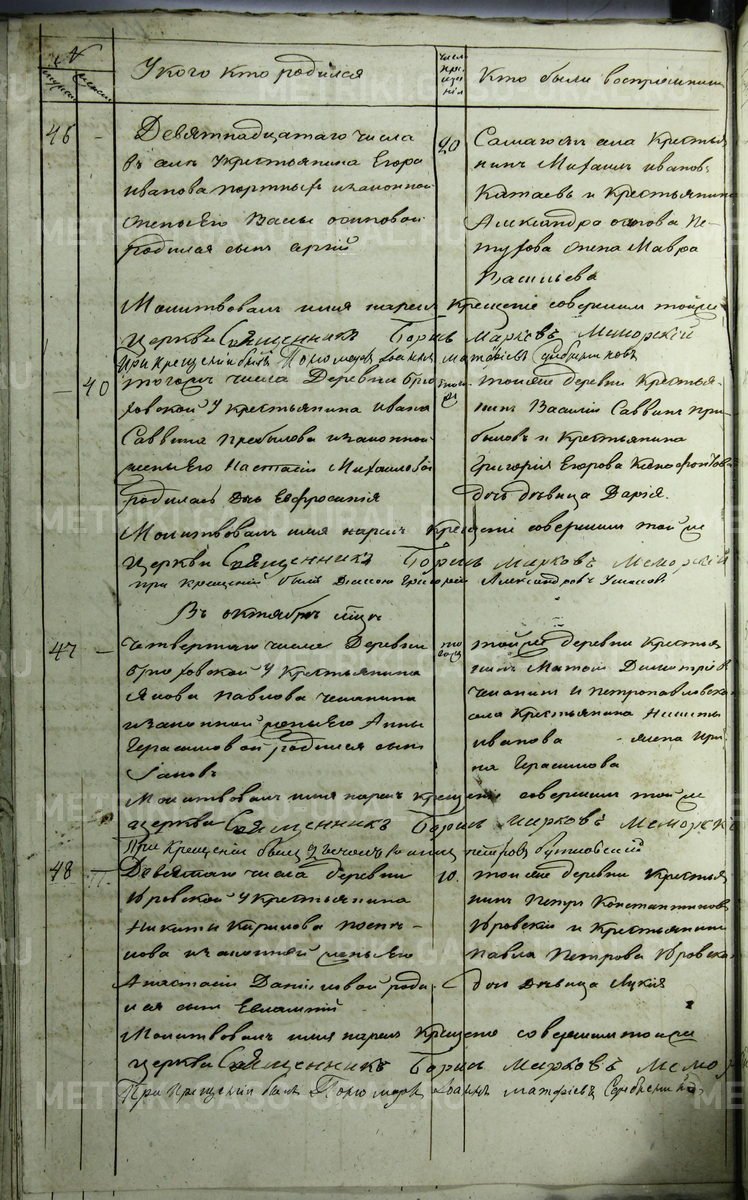 №
У кого кто родился
Число крещения
Кто были восприемники
46 –
Девятнадцатаго числа
въ селѣ У крестьянина Егора
иванова портных изаконной
жены Его Васы осиповой
родился сынъ
20
Самагожъ села Крестья
нинъ Михаилъ иванов
Китаевъ и Крестьянина
Александра Пе
тухова жена Мавра
Васильева
Молитвовалъ имя нарекъ Крещение совершилъ тойже
Церкви Священникъ Борисъ Марковъ Меморскiй
При крещенiи былъ Пономарь Iоаннъ Матфiевъ Серебренниковъ
– 40
тогожъ числа Деревни брю
ховской У крестьянина ивана
Саввина Прибылова изаконной
жены Его Настасiи Михаиловой
родилась дочь Евфросинiя
тойже деревни Крестья
нинъ Василiй Саввинъ при
быловъ и Крестьянина
Григорiя Егорова Ксенофонтова
дочь дѣвица Дарiя.
Молитвовалъ имя нарекъ Крещенiе совершилъ тойже
Церкви Священникъ Борисъ Марковъ Меморскiй
при крещенiи былъ Дьячокъ Григорiй Александровъ Ушаковъ
Въ октябрѣ мцѣ
47 –
Четвертаго числа Деревни
брюховской У крестьянина
Якова павлова Чепанина
изаконной жены Его Анны
Герасимовой родился сынъ
Iаковъ
тойже деревни Крестья
нинъ Матфiй Димитрiев
чепанинъ и петропавловска
села Крестьянина Никиты
иванова жена Ири
на Герасимова
Молитвовалъ имя нарекъ крещенiе совершилъ тойже
церкви Священникъ Борисъ Марковъ Меморскiй
При Крещенiи былъ петровъ бутковскiй
48
Девятаго числа деревни
Юровской У крестьянина
Никиты Кирилова
изаконной жены Его
Анастасiи Данииловой роди
лся сынъ Евлампiй
10.
тойже деревни Крестья
нинъ Петръ Константиновъ
Юровскiй и Крестьянина
Павла Петрова Юровска
дочь дѣвица Лукiя
Молитвовалъ имя нарекъ Крещенiе совершилъ тойже
церкви Священникъ Борисъ Марковъ Мемор
При крещенiи былъ Пономарь Iоаннъ Матфiевъ Серебренниковъ